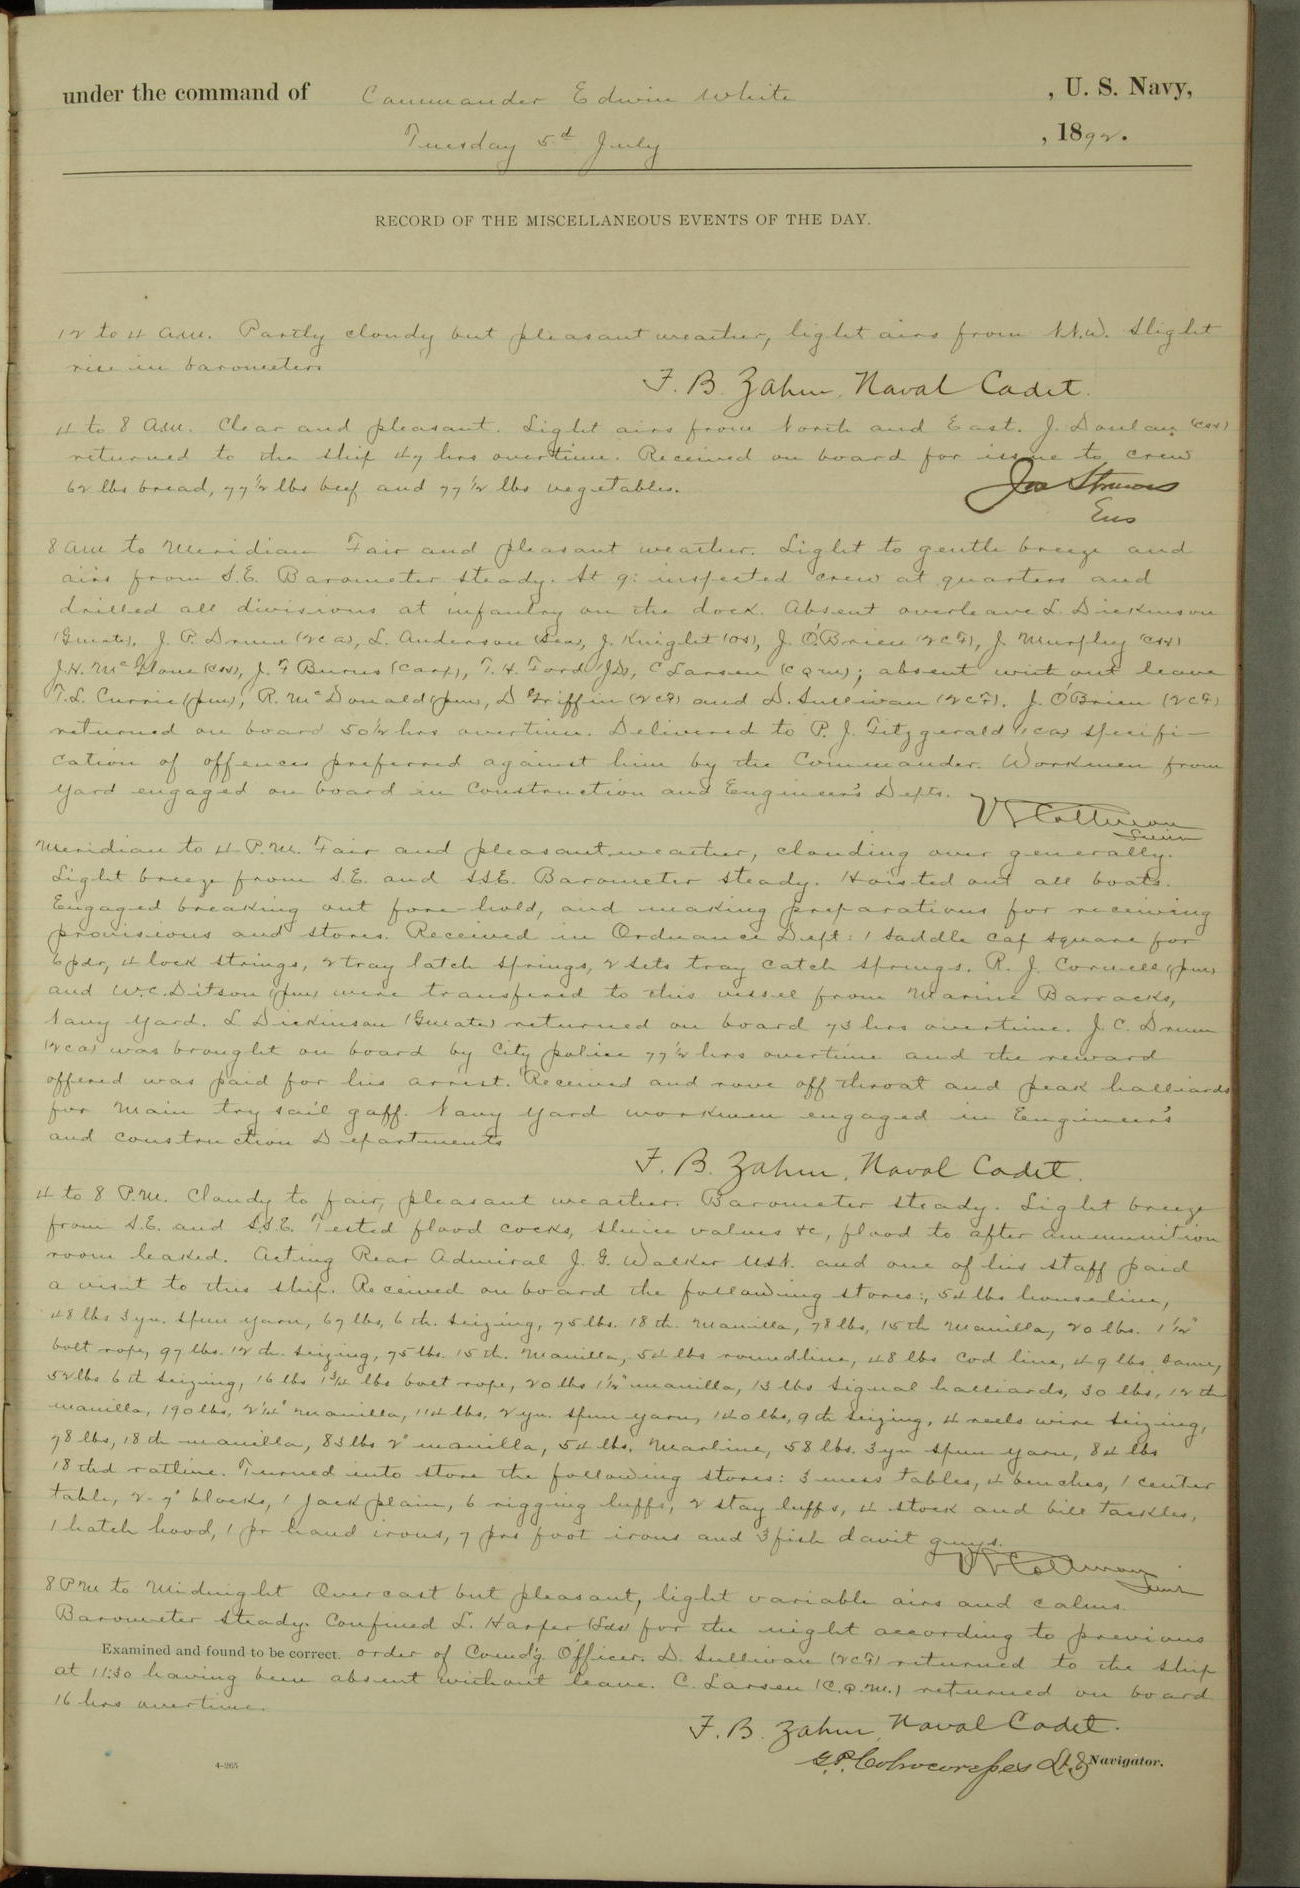 under the command of Commander Edwin White , U. S. Navy,
Tuesday 5d July , 1892.
RECORD OF THE MISCELLANEOUS EVENTS OF THE DAY.
12 to 4 a.m. Partly cloudy but pleasant weather, light airs from N.N.W. Slight
rise in barometer.
F. B. Zahm, Naval Cadet.
4 to 8 a.m. Clear and pleasant. Light airs from North and East. J. Donlan
returned to the ship 47 hrs overtime. Received on board for issue to crew
62 lbs bread, 77 1/2 lbs beef and 77 1/2 lbs vegetables.
Jos Strauss
Ens
8 am to Meridian Fair and pleasant weather. Light to gentle breeze and
airs from S.E. Barometer steady. At 9: inspected crew at quarters and
drilled all divisions at infantry on the dock. Absent overleave L. Dickinson
(Gmate), J. P. Drum (2ca), L. Anderson (Sea), J. Knight (os), J. O'Brien (2cf), J. Murphy
J.H. McGlone, J. F Burns (Carp), T. H. Ford, C Larsen (cqm); absent without leave
T.L. Currie (pm), R. McDonald (pm), D Griffin (2cf) and D. Sullivan (2cf). J. O'Brien (2cf)
returned on board 50 1/2 hrs overtime. Delivered to P. J. Fitzgerald (1ca) specifi-
cation of offences preferred against him by the Commander. Workmen from
Yard engaged on board in Construction and Engineer's Depts.
Meridian to 4 P.M. Fair and pleasant weather, clouding over generally.
Light breeze from S.E. and SSE. Barometer steady. Hoisted out all boats.
Engaged breaking out fore-hold, and making preparations for receiving
provisions and stores. Received in Ordnance Dept: 1 saddle cap square for
6 pdr, 4 lock strings, 2 tray latch springs, 2 sets tray catch springs. R. J. Corwell (pm)
and W.C. Ditson (pm) were transfered to this vessel from Marine Barracks,
Navy Yard. L Dickinson (Gmate) returned on board 73 hrs overtime. J. C. Drum
(2ca) was brought on board by City police 77 1/2 hrs overtime and the reward
offered was paid for his arrest. Received and rove off throat and peak halliards
for Main try sail gaff. Navy Yard workmen engaged in Engineer's
and construction Departments
F. B. Zahm, Naval Cadet.
4 to 8 P.M. Cloudy to fair, pleasant weather. Barometer steady. Light breeze
from S.E. and S.S.E. Tested flood cocks, sluice valves &c, flood to after ammunition
room leaked. Acting Rear Admiral J. G. Walker U.S.N. and one of his staff paid
a visit to this ship. Received on board the following stores:, 54 lbs houseline,
48 lbs 3 yn. spun yarn, 67 lbs, 6 th. seizing, 75 lbs. 18 th. Manilla, 78 lbs, 15 th Manilla, 20 lbs. 1 1/2"
bolt rope, 97 lbs. 12 th. seizing, 75 lbs. 15 th. Manilla, 54 lbs roundline, 48 lbs Cod line, 49 lbs. same,
52 lbs 6 th seizing, 16 lbs 1 3/4 lbs bolt rope, 20 lbs 1 1/2" manilla, 13 lbs signal halliards, 30 lbs, 12 th
manilla, 190 lbs, 2 1/4" Manilla, 114 lbs, 2 yn. spun yarn, 140 lbs, 9 th seizing, 4 reels wire seizing,
78 lbs, 18 th manilla, 83 lbs 2" manilla, 54 lbs. Marline, 58 lbs. 3 yn spun yarn, 84 lbs
18 thd ratline. Turned into store the following stores: 3 mess tables, 4 benches, 1 center
table, 2-7" blocks, 1 Jack plain, 6 rigging luffs, 2 stay luffs, 4 stock and bill tackles,
1 hatch hood, 1 pr hand irons, 7 prs foot irons and 3 fish davit guys.
8 PM to Midnight Overcast but pleasant, light variable airs and calms.
Barometer steady. Confined L. Harper (Lds) for the night according to previous
Examined and found to be correct. order of Comd'g Officer. D. Sullivan (2cf) returned to the ship
at 11:30 having been absent without leave. C. Larsen (C.Q.M.) returned on board
16 hrs overtime.
F. B. Zahm, Naval Cadet.
G.P. Colvocoresses Lt. & Navigator.
4-265